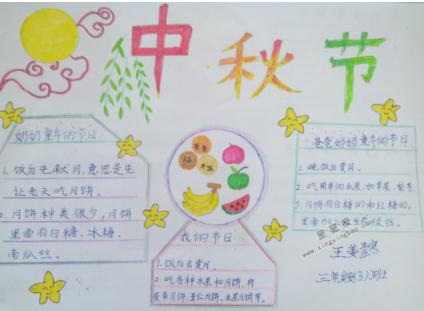 中秋节
奶奶童年的节日
1. 饭后先献月,意思是先
让老天吃月饼。
2. 月饼种类很少,月饼
里面有白糖、冰糖、
南瓜丝。
我的节日
1. 饭后去赏月。
2. 吃各种水果和月饼,有
蛋黄月饼、五仁月饼、水果月饼等。
爸爸妈妈童年的节日
1. 晚饭后赏月。
2. 吃简单的水果,如苹果、梨等
3. 月饼有白糖的和红糖的,
里面
三年级(3)班